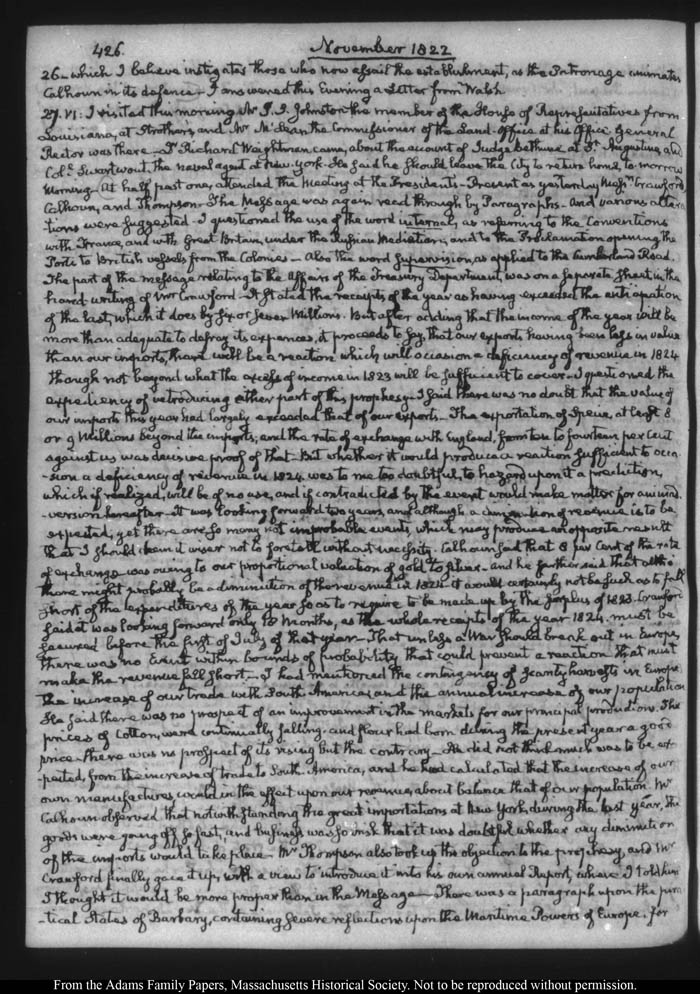 426.
November 1822
26_ which I believe instigates those who now assail the establishment, as the Patronage animates
Calhoun in its defence_ I answered this Evening a Letter from Walsh
27. VI: I visited this morning Mr J. S. Johnston the member of the House of Representatives from
Louisiana, at Strothers, and Mr McLean the Commissioner of the Land-Office at his Office General
Rector was there_ Dr Richard Weightman came, about the account of Judge Bethune at St Augustine, and
Coll Swartwout, the naval agent at New-York. He said he should leave the City to return home, to morrow
Morning_ At half past one, attended the Meeting at the President's_ Present as yesterday Messrs Crawford,
Calhoun, and Thompson_ The Message was again read through by Paragraphs_ And various altera
tions were suggested_ I questioned the use of the word internal, as referring to the Conventions
with France, and with Great Britain, under the Russian Mediation, and to the Proclamation opening the
Ports to British vessels from the Colonies_ Also the word supervision, as applied to the Cumberland Road.
The part of the message relating to the Affairs of the Treasury Department, was on a separate sheet in the
hand-writing of Mr Crawford_ It stated the receipts of the year as having exceeded the anticipation
of the last, which it does by six or seven Millions. But after adding that the income of the year will be
more than adequate to defray its expences, it proceeds to say, that our exports having been less in value
than our imports, there will be a reaction which will occasion a deficiency of revenue in 1824
though not beyond what the excess of income in 1823 will be sufficient to cover_ I questioned the
expediency of introducing either part of this prophesy_ I said there was no doubt that the value of
our imports this year had largely exceeded that of our exports_ The exportation of Specie, at least 8
or 9 Millions beyond the imports, and the rate of exchange with England, from ten to fourteen per Cent
against us was decisive proof of that. But whether it would produce a reaction sufficient to occa
-sion a deficiency of revenue in 1824. was to me too doubtful, to hazard upon it a prediction,
which if realized, will be of no use, and if contradicted by the event would make matter for animad
-version hereafter_ It was looking forward two years, and although a diminution of revenue is to be
expected, yet there are so many not improbable events, which may produce an opposite result
that I should deem it wiser not to foretell without necessity. Calhoun said that 8 per Cent of the rate
of exchange was owing to our proportional valuation of gold to silver_ and he further said that altho'
there might probably be a diminution of the revenue in 1824. it would certainly not be such as to fall
short of the expenditures of the year so as to require to be made up by the surplus of 1823. Crawford
said it was looking forward only 18 months, as the whole receipts of the year 1824. must be
secured before the first of July of that year_ That unless a War should break out in Europe,
there was no Event within bounds of probability that could prevent a reaction that must
make the revenue fall short_ I had mentioned the contingency of scanty harvests in Europe
The increase of our trade with South-America, and the annual increase of our population
He said there was no prospect of an improvement in the markets for our principal productions. The
prices of Cotton, were continually falling, and flour had born during the present year a good
price_ there was no prospect of its rising but the contrary_ He did not think much was to be ex-
-pected, from the increase of trade to South-America, and he had calculated that the increase of our
own manufactures would in the effect upon our revenue, about balance that of our population. Mr
Calhoun observed that notwithstanding the great importations at New York, during the last year, the
goods were going off so fast, and business was so brisk that it was doubtful whether any diminution
of the imports would take place_ Mr Thompson also took up the objection to the prophesy, and Mr
Crawford finally gave it up, with a view to introduce it into his own annual Report, where I told him
I thought it would be more proper than in the Message_ There was a paragraph upon the pira
-tical States of Barbary, containing severe reflections upon the Maritime Powers of Europe, for
From the Adams Family Papers, Massachusetts Historical Society. Not to be reproduced without permission.